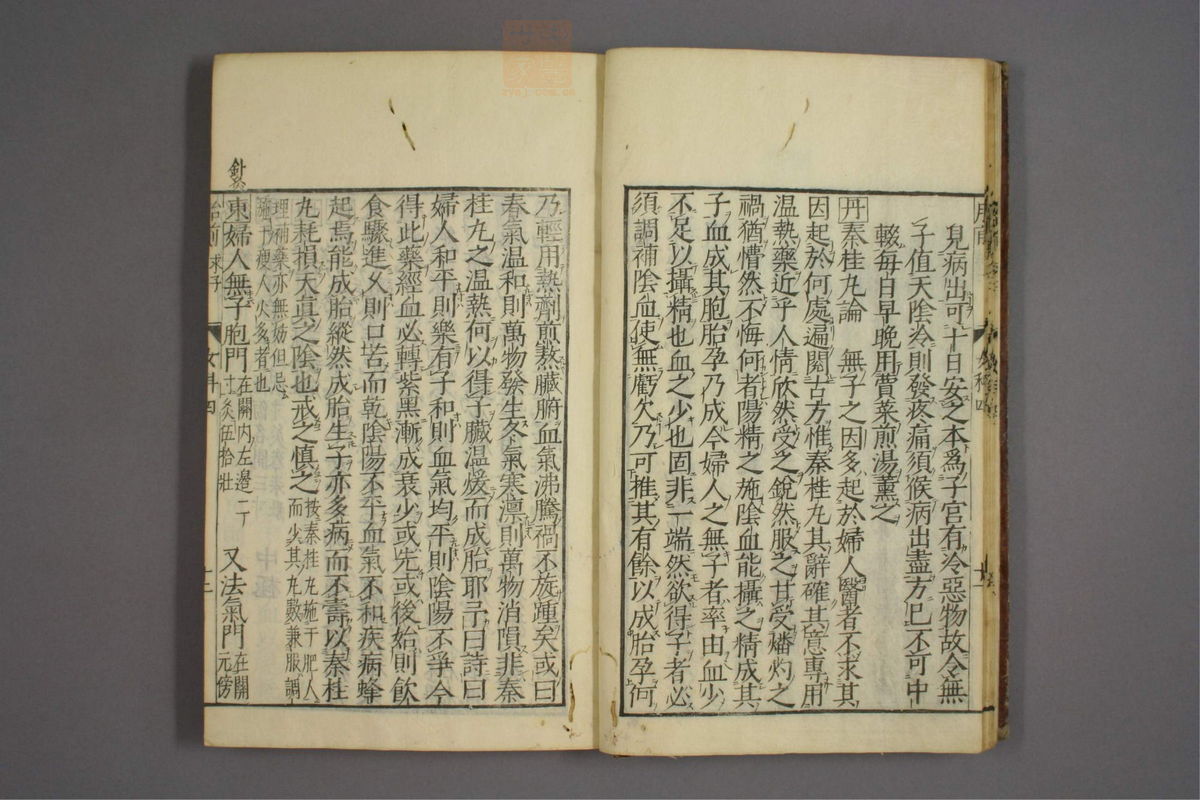 兒病出可十日安之本爲子宮有冷惡物故令無
子值天陰冷則發疼痛須候病出盡方已不可中
輟每日早晚用賣菜煎湯薰之
丹秦桂丸論 無子之因多起於婦人醫者不求其
因起於何處遍閱古方惟秦桂丸其辭確其意專用
温熱藥近乎人情欣然受之銳然服之甘受燔灼之
禍猶懵然不悔何者陽精之施陰血能攝之精成其
子血成其胞胎孕乃成今婦人之無子者率由血少
不足以攝精也血之少也固非一端然欲得子者必
須調補陰血使無虧欠乃可推其有餘以成胎孕何
乃輕用熱劑煎熬臟腑血氣沸騰禍不旋踵矣或曰
春氣温和則萬物發生冬氣寒凛則萬物消隕非秦
桂丸之温熱何以得子臟温煖而成胎耶予曰詩曰
婦人和平則樂有子和則血氣均平則陰陽不爭今
得此藥經血必轉紫黑漸成衰少或先或後始則飲
食驟進久則口苦而乾陰陽不平血氣不和疾病蜂
起焉能成胎縱然成胎生子亦多病而不壽以秦桂
丸耗損天真之陰也戒之慎之 按秦桂丸施于肥人
而少其丸數兼服調
理補藥亦無妨但忌
施于瘦人火多者也
東婦人無子胞門 在關内左邊二
寸灸伍拾壯 又法氣門 在關
元傍
胎前 求子 女科四